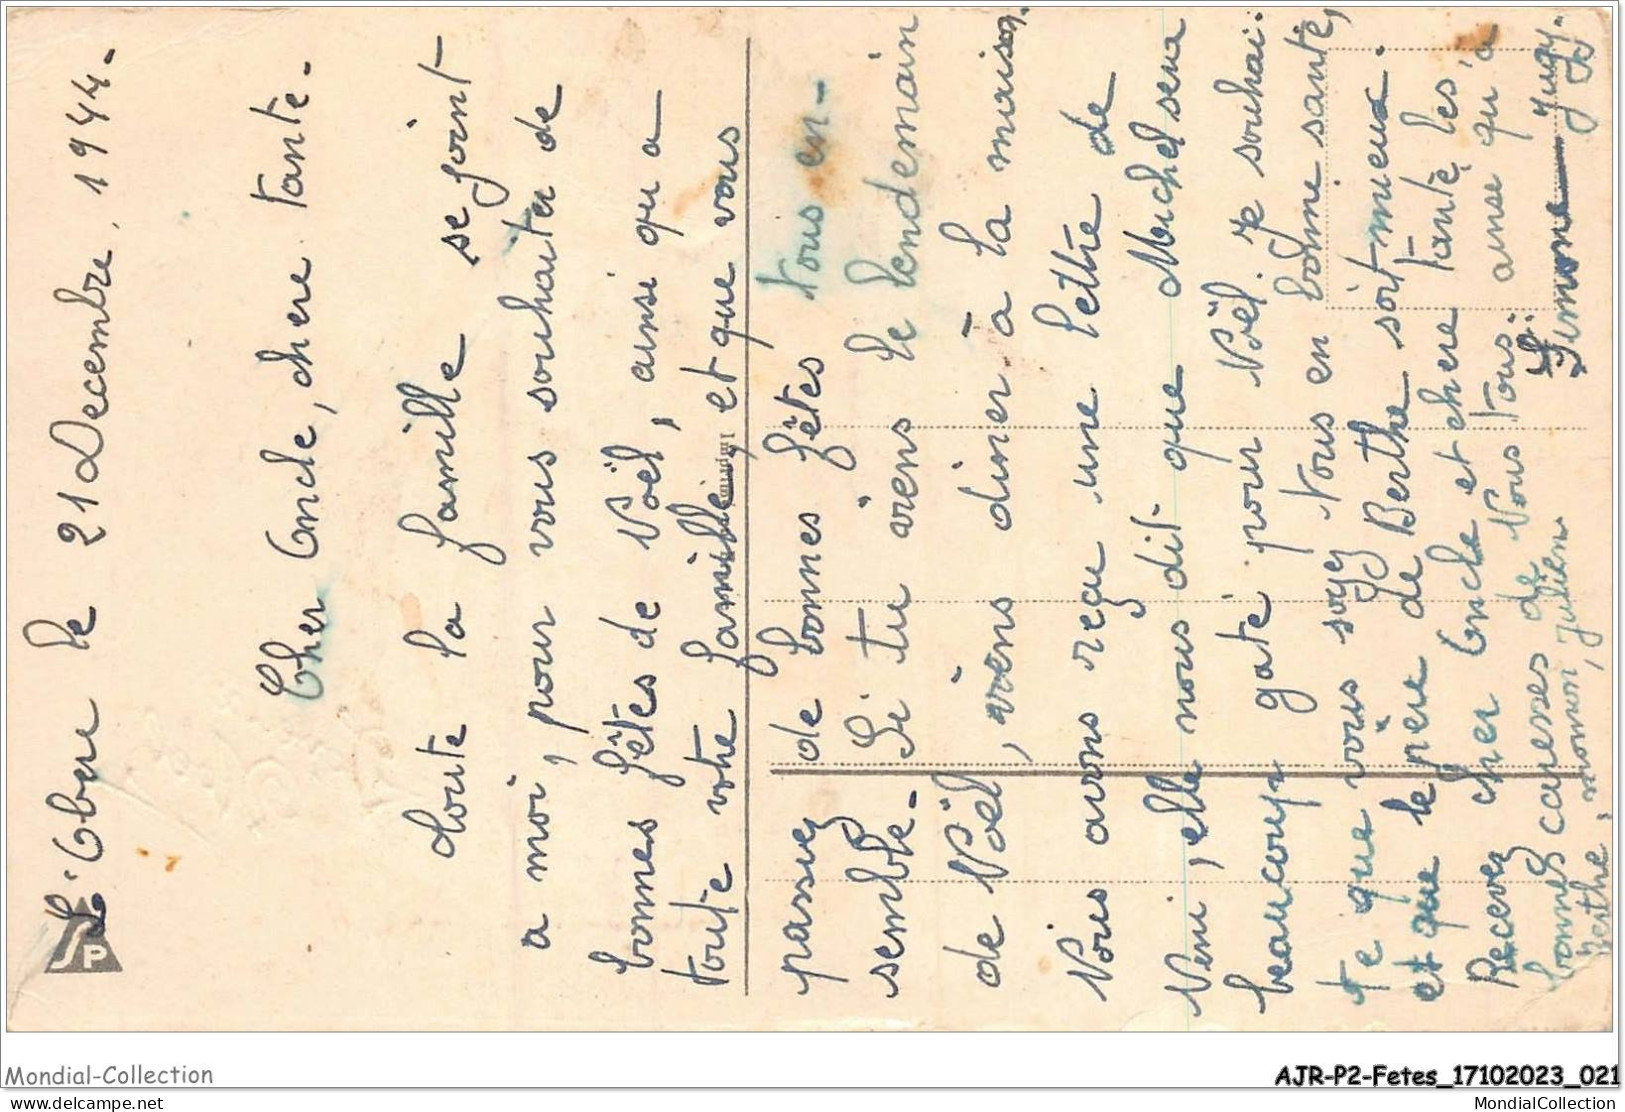 le 21 Decembre, 1944.
Cher Oncle, chere Tante.
toute la famille se joint
a moi, pour vous souhaiter de
bonnes fêtes de Noël, ainsi qu a
toute votre famille, et que vous
passiez de bonnes fêtes tous en-
semble. Si tu viens le lendemain
de Noël, viens diner à la maison.
Nous avons reçu une lettre de
Nini, elle nous dit que Michel sera
beaucoup gaté pour Noël. je souhai-
te que vous soyez tous en bonne santé,
et que le père de Berthe soit mieux.
Recevez cher Oncle et chere Tante les
bonnes caresses de nous tous ainsi qu'a
Berthe, maman, julien
Simone
SP
Imprimé
Mondial-Collection
AJR-P2-Fetes_17102023_021
www.delcampe.net
MondialCollection